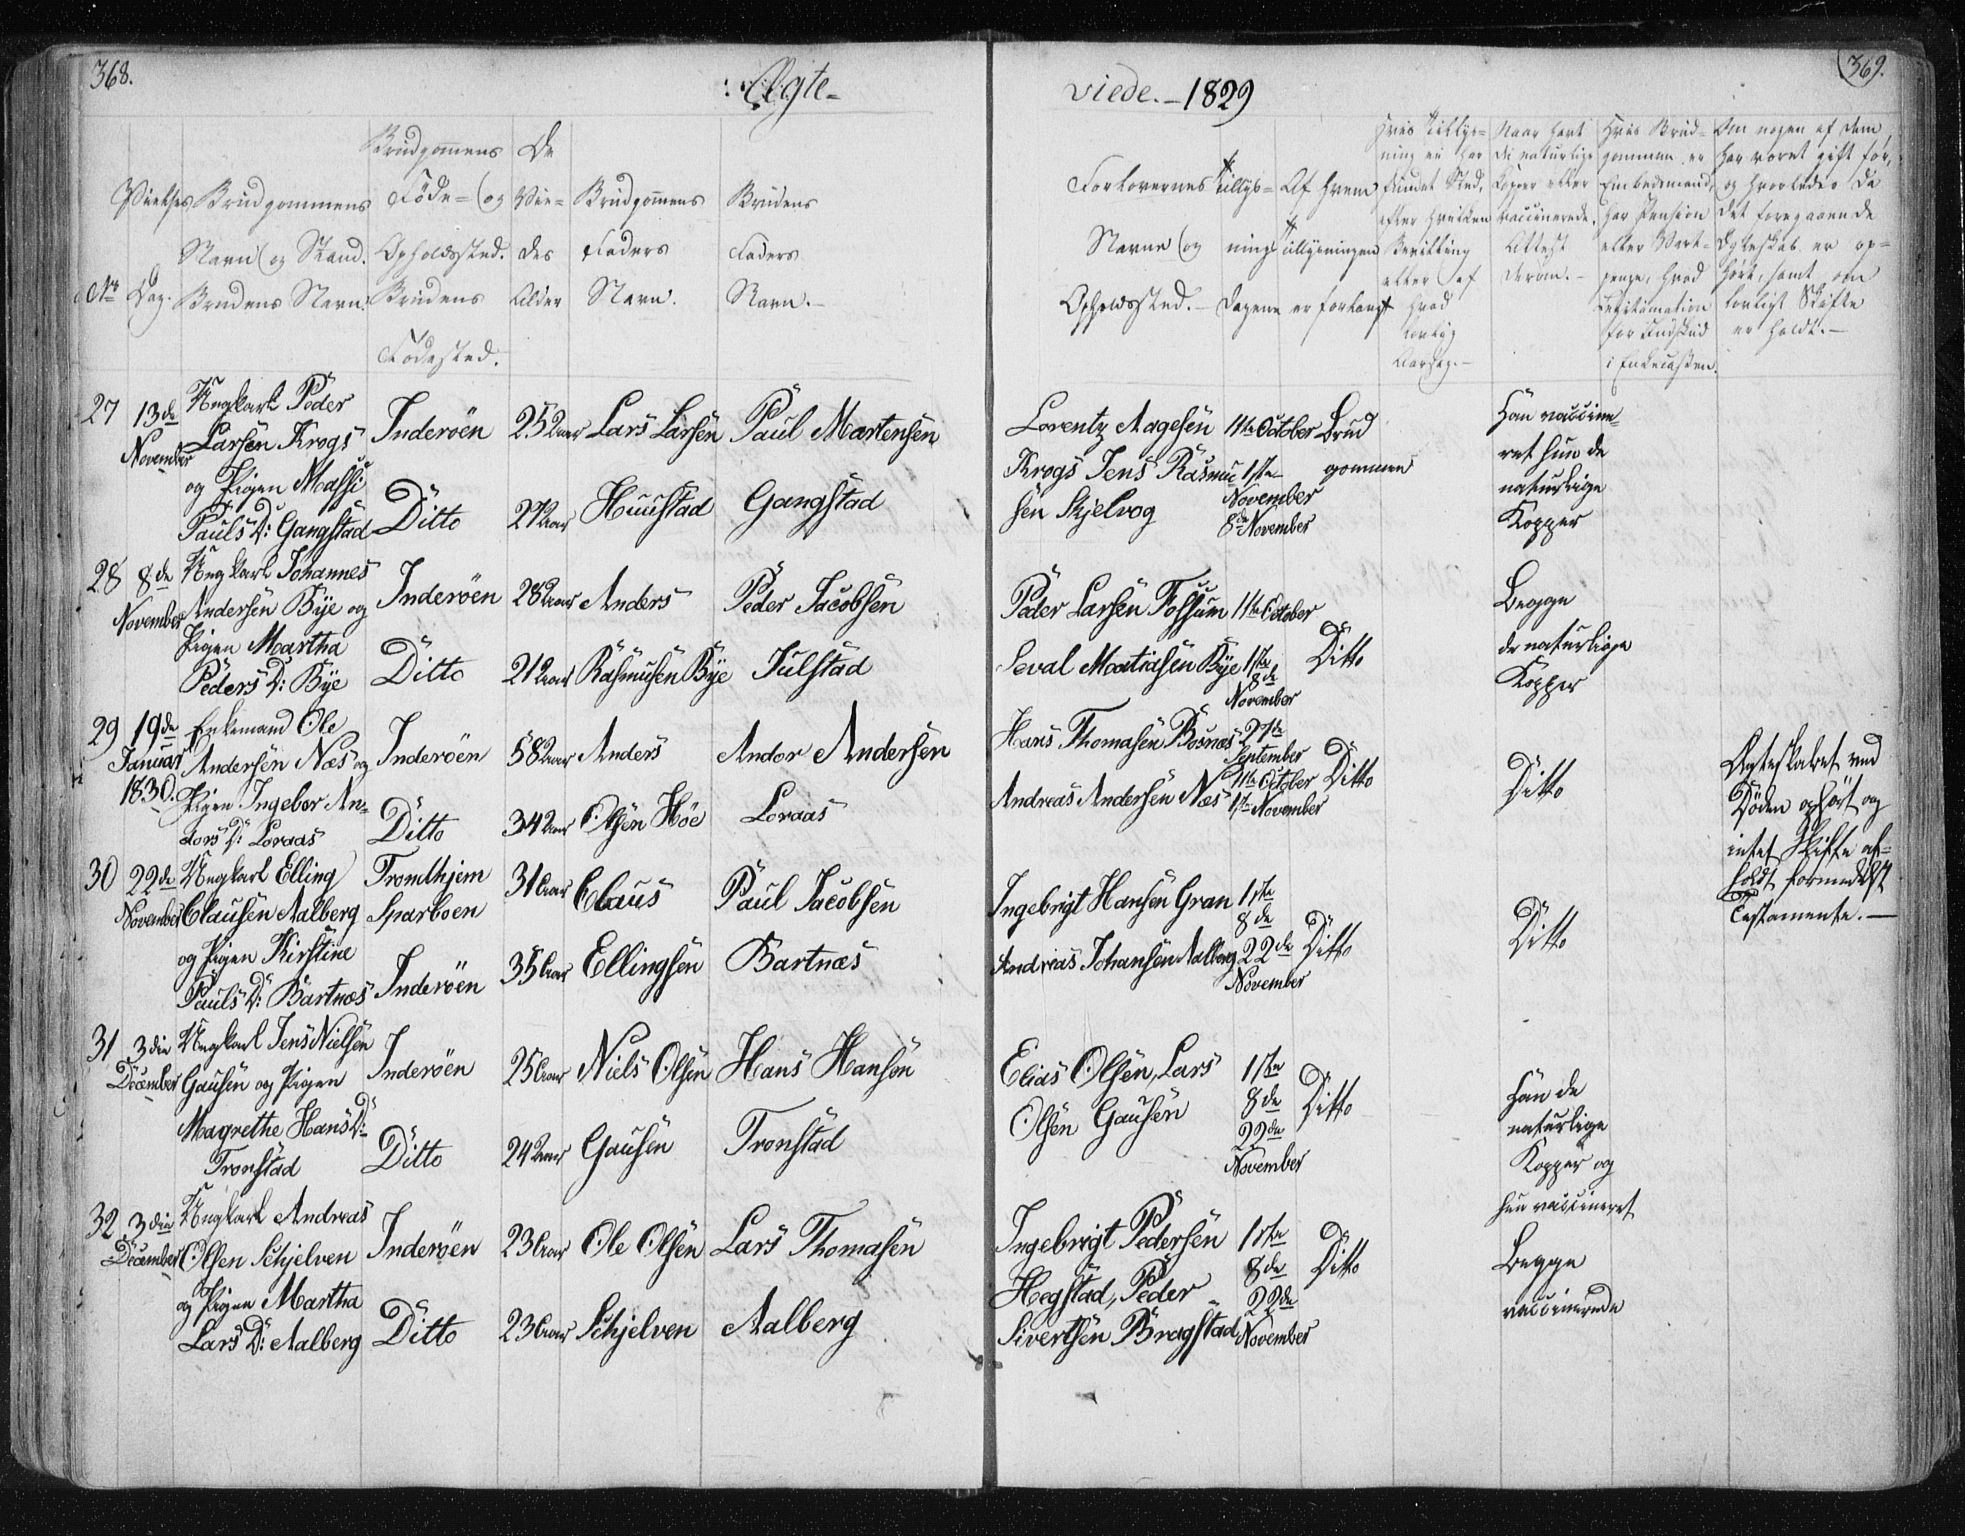 368.
Ægte-
viede. - 1829
369.
No
Vielses
Dag.
Brudgommens
Navn og Stand.
Brudens Navn.
Brudgommens
Føde- og
Opholdssted.
Brudens
Fødested.
De
Vie-
des
Alder
Brudgommens
Faders
Navn.
Brudens
Faders
Navn.-
Forlovernes
Navne og
Opholdssted.-
Tillys-
nings
dagene
Af hvem
Tillysningen
er forlangt
Hvis Tillys-
ning ei har
fundet Sted,
efter hvilken
Bevilling
eller af
hvad
lovlig
Aarsag.-
Naar havt
de naturlige
Kopper eller
vaccinerede.
Attest
derom.-
Hvis Brud-
gommen er
Embedsmand,
har Pension
eller Vart-
penge, hvad
Legitimation
for Indskud
i Enkecassen.
Om nogen af dem
har været gift før,
og hvorledes da
det foregaaende
Ægteskab er op-
hørt, samt om
lovligt Skifte
er holdt.-
27
13de
November
Ungkarl Peder
Larsen Krogs
og Pigen Massi
Pauls D: Gangstad
Inderöen
Ditto
25 Aar
27 Aar
Lars Larsen
Huustad
Paul Martensen
Gangstad
Lorentz Aagesen
Krogs Jens Rasmu
sen Skjelvog
11te October
1ste
November
8de November
Brud
gommen
Han vaccine-
ret hun de
naturlige
Kopper
28
8de
November
Ungkarl Johannes
Andersen Bye og
Pigen Martha
Peders D: Bye
Inderöen
Ditto
28 Aar
21 Aar
Anders
Rasmusen Bye
Peder Jacobsen
Julstad
Peder Larsen Folsum
Seval Matiasen Bye
11te October
1ste
8de
November
Ditto
Begge
de naturlige
Kopper
29
19de
Januar
1830.
Enkemand Ole
Andersen Næs og
Pigen Ingebor An-
dors D: Loraas
Inderöen
Ditto
58 Aar
34 Aar
Anders
Olsen Höe
Andor Andersen
Loraas
Hans Thomasen Bosnæs
Andreas Andersen Næs
27de
September
11te October
1ste November
Ditto
Ditto
Ægteskabet ved
Döden ophört og
intet Skifte af-
holdt formedelst
Testamente.-
30
22de
November
Ungkarl Elling
Clausen Aalberg
og Pigen Kirstine
Pauls D: Bartnæs
Trondhjem
Sparboen
Inderöen
31 Aar
35 Aar
Claus
Ellingsen
Paul Jacobsen
Bartnæs
Ingebrigt Hansen Gran
Andreas Johansen Aalberg
1ste
8de
22de
November
Ditto
Ditto
31
3die
December
Ungkarl Jens Nielsen
Gausen og Pigen
Magrethe Hans D:
Tronstad
Inderöen
Ditto
25 Aar
24 Aar
Niels Olsen
Gausen
Hans Hansen
Tronstad
Elias Olsen, Lars
Olsen Gausen
1ste
8de
22de
November
Ditto
Han de
naturlige
Kopper og
hun vaccineret
32
3die
December
Ungkarl Andreas
Olsen Schjelven
og Pigen Martha
Lars D: Aalberg
Inderöen
Ditto
23 Aar
23 Aar
Ole Olsen
Schjelven
Lars Thomasen
Aalberg
Ingebrigt Pedersen
Hegstad, Peder
Sivertsen Bragstad
1ste
8de
22de
November
Ditto
Begge
vaccinerede